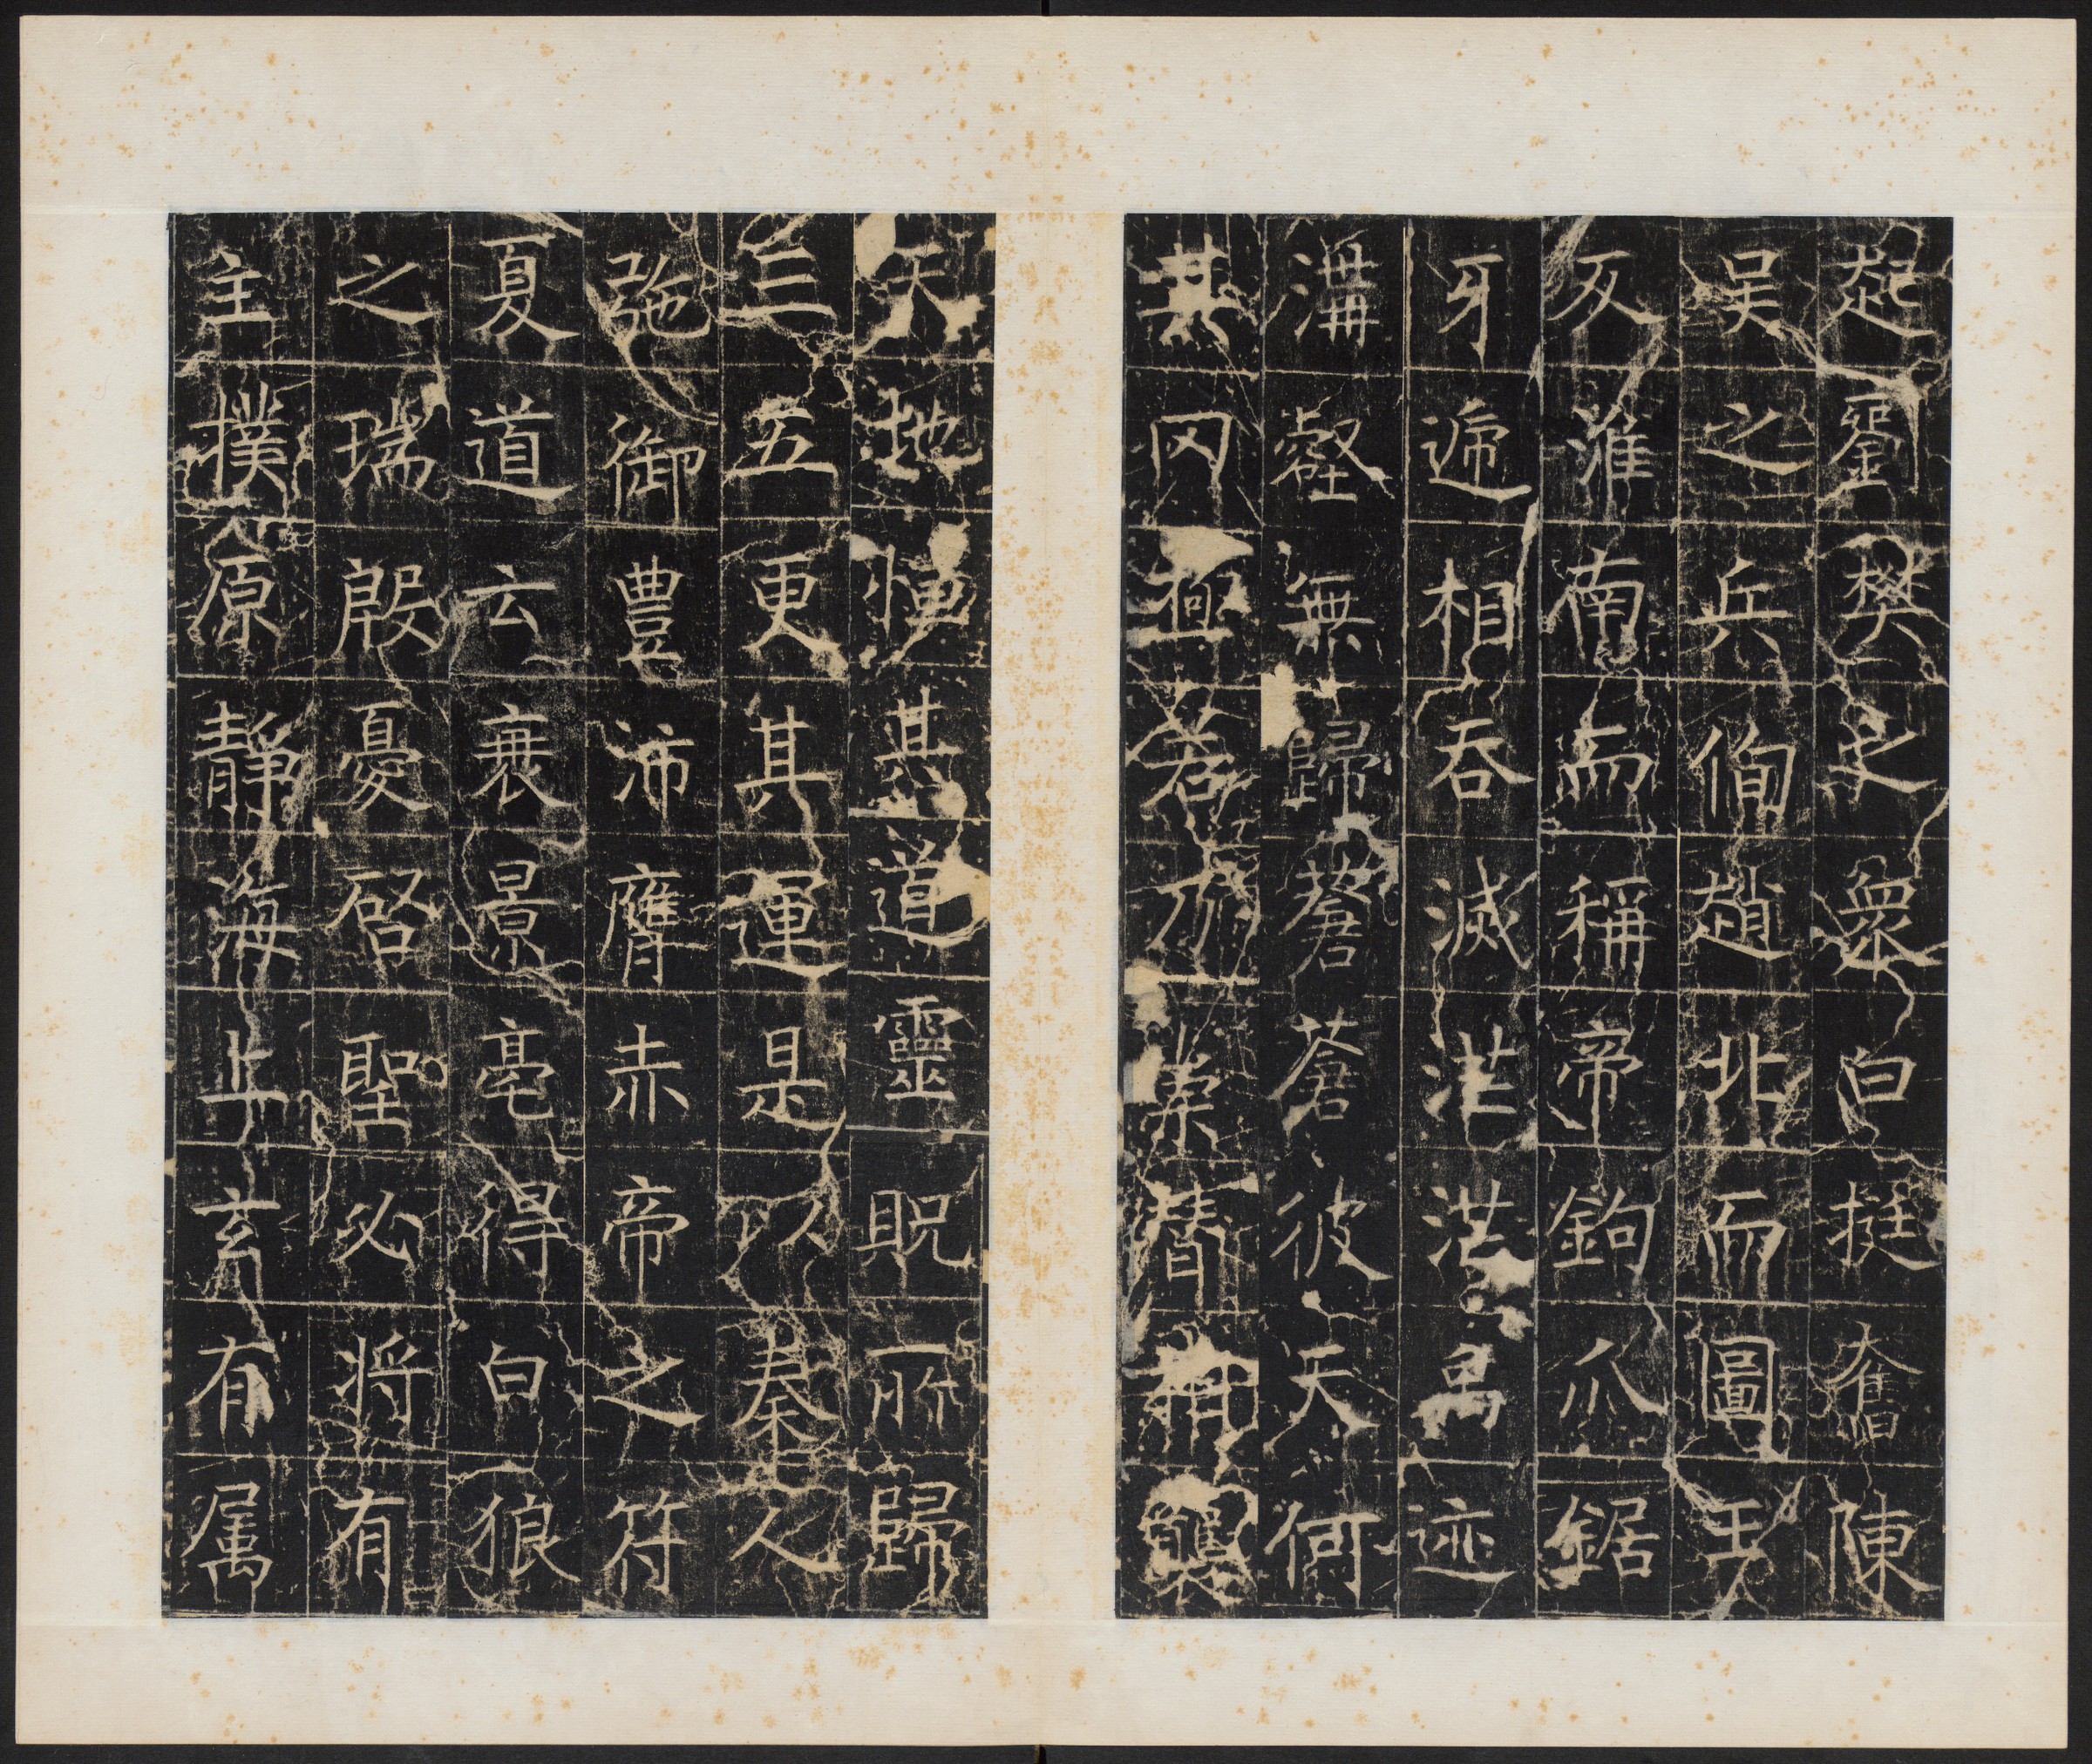 起劉樊之衆白挺奮陳
吳之兵徇趙北而圖王
反淮南而稱帝鉤爪鋸
牙遞相吞滅茫茫禹迹
溝壑無歸蒼蒼彼天何
其罔極若乃替相襲
天地其道靈貺所歸
三五更其運是以秦人
弛御豐沛膺赤帝之符
夏道云衰景亳得白狼
之瑞殷憂啓聖必將有
主撲原靜海上玄有属